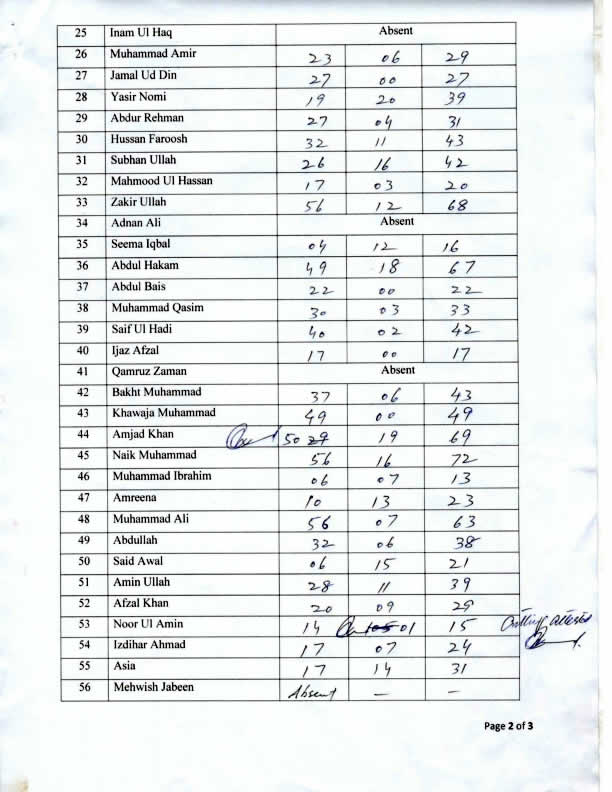 25 Inam Ul Haq Absent
26 Muhammad Amir 23 06 29
27 Jamal Ud Din 27 00 27
28 Yasir Nomi 19 20 39
29 Abdur Rehman 27 04 31
30 Hussan Faroosh 32 11 43
31 Subhan Ullah 26 16 42
32 Mahmood Ul Hassan 17 03 20
33 Zakir Ullah 56 12 68
34 Adnan Ali Absent
35 Seema Iqbal 04 12 16
36 Abdul Hakam 49 18 67
37 Abdul Bais 22 00 22
38 Muhammad Qasim 30 03 33
39 Saif Ul Hadi 40 02 42
40 Ijaz Afzal 17 00 17
41 Qamruz Zaman Absent
42 Bakht Muhammad 37 06 43
43 Khawaja Muhammad 49 00 49
44 Amjad Khan 50 29 19 69
45 Naik Muhammad 56 16 72
46 Muhammad Ibrahim 06 07 13
47 Amreena 10 13 23
48 Muhammad Ali 56 07 63
49 Abdullah 32 06 38
50 Said Awal 06 15 21
51 Amin Ullah 28 11 39
52 Afzal Khan 20 09 29
53 Noor Ul Amin 14 01 15 Cutting attested
54 Izdihar Ahmad 17 07 24
55 Asia 17 14 31
56 Mehwish Jabeen Absent — —
Page 2 of 3